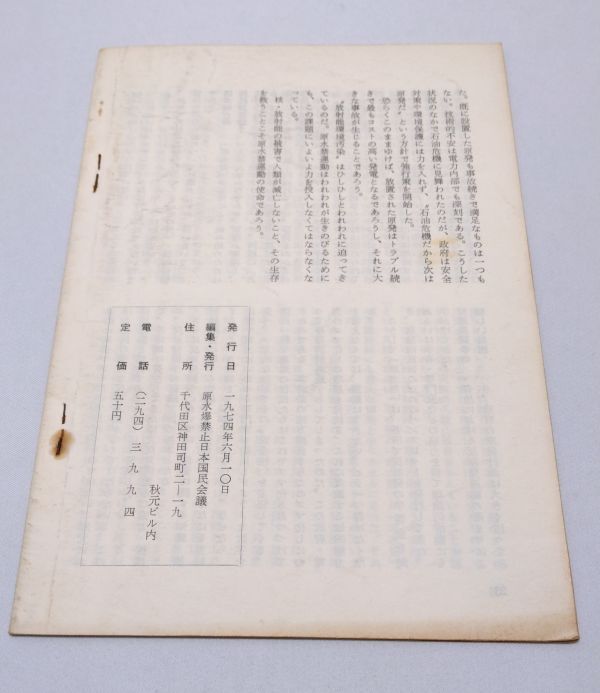 た。既に設置した原発も事故続きで満足なものは一つも
ない。技術的不安は電力内部でも深刻である。こうした
状況のなかで石油危機に見舞われたのだが、政府は安全
対策や環境保護には力を入れず、〝石油危機だから次は
原発だ〟という方針で強行策を開始した。
恐らくこのままゆけば、放置された原発はトラブル続
きで最もコストの高い発電となるであろうし、それに大
きな事故が生じることであろう。
〝放射能環境汚染〟はひしひしとわれわれに迫ってき
ているのだ。原水禁運動はわれわれが生きのびるために
も、この課題にいよいよ力を投入しなくてはならなくな
っている。
核・放射能の被害で人類が滅亡しないこと、その生存
を救うことこそ原水禁運動の使命であろう。
発行日 一九七四年六月一〇日
編集・発行 原水爆禁止日本国民会議
住所 千代田区神田司町二ー一九
秋元ビル内
電話 (二九四)三九九四
定価 五十円